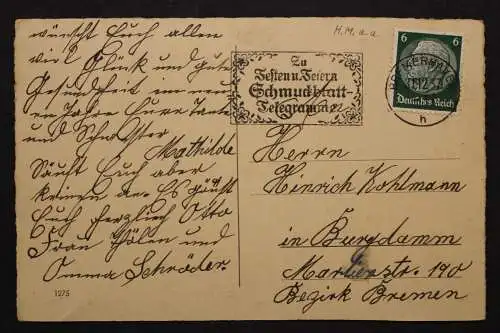 wünscht Euch allen
viel Glück und gute
Gesundheit im neu
en Jahre Eure Tante
und Schwester
Mathilde
Säuft Euch aber
keinen an. Es grüßt
Euch herzlich Otto
Frau und
Omma Schröder.
1275
H.M. a.a.
Zu
Festen u. Feiern
Schmuckblatt-
Telegramme
6 6
Deutsches Reich
h
Herrn
Heinrich Kohlmann
in Burgdamm
Str. 190
Bezirk Bremen